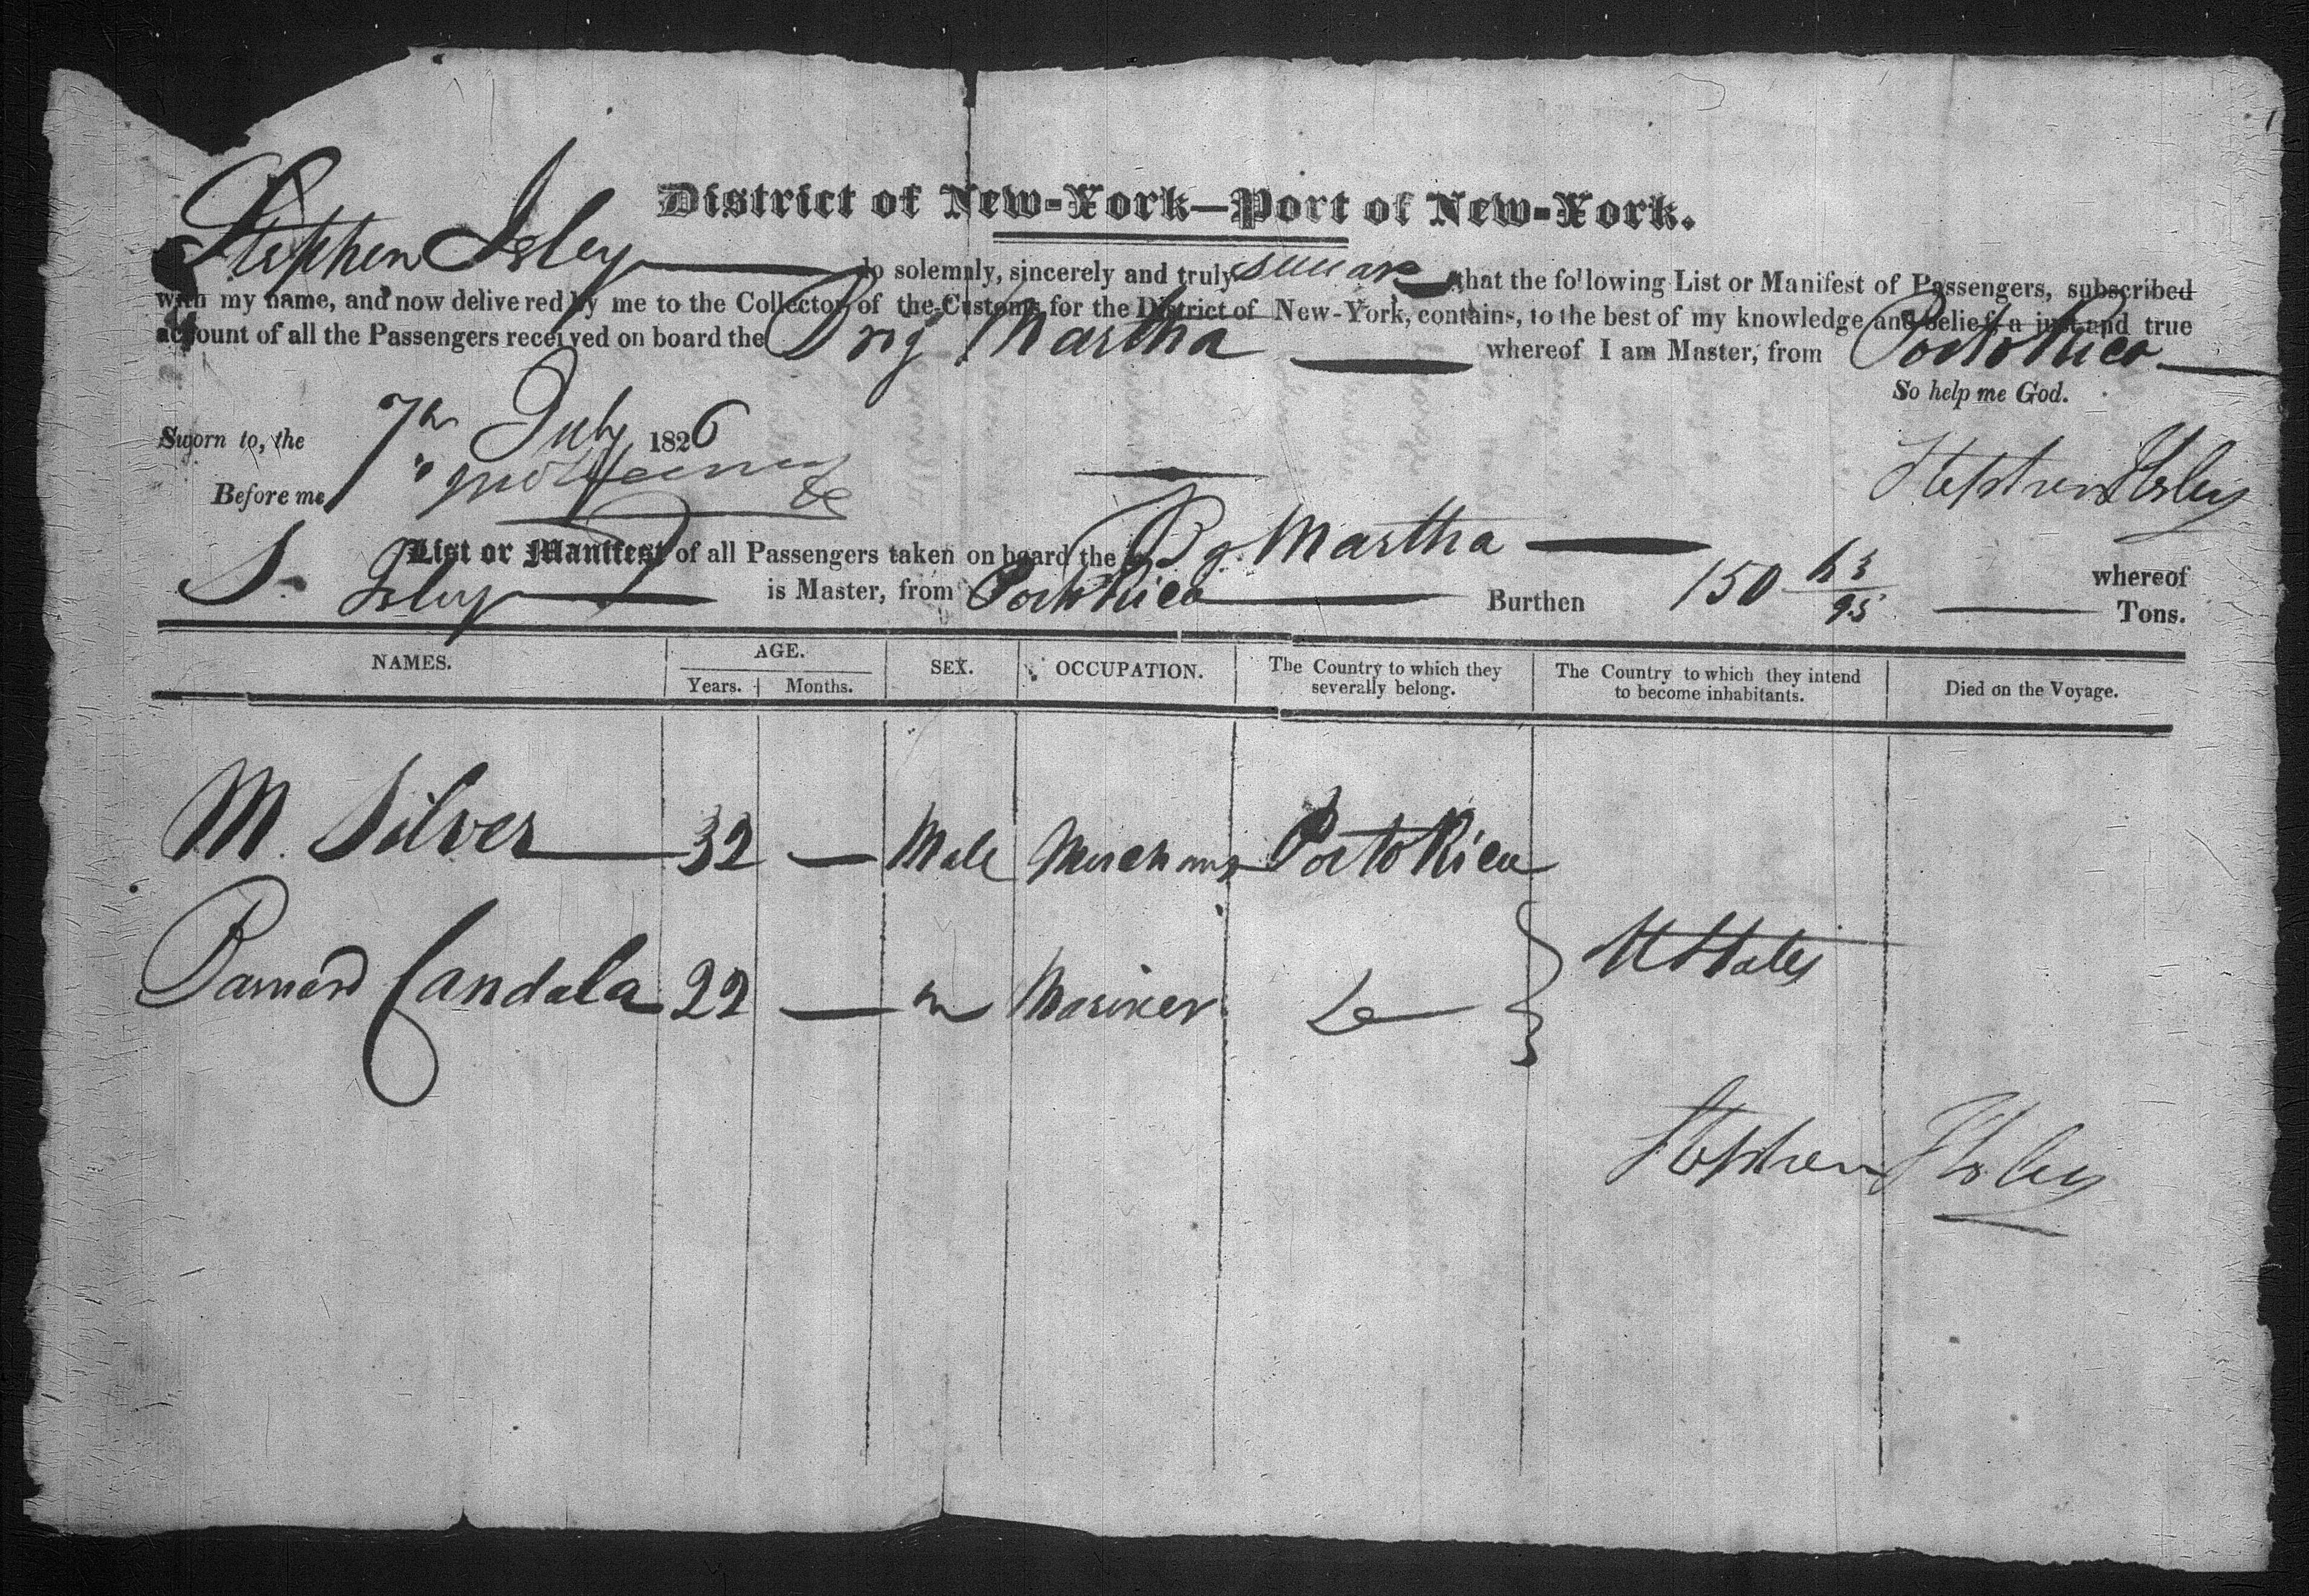 District of New-York—Port of New-York.
Stephen Isley do solemnly, sincerely and truly swear that the following List or Manifest of Passengers, subscribed
with my name, and now delivered by me to the Collector of the Customs for the District of New-York, contains, to the best of my knowledge and belief, a just and true
account of all the Passengers received on board the Brig Martha whereof I am Master, from Porto Rico
So help me God.
Sworn to, the 7th July 1826
Before me
Stephen Isley
List or Manifest of all Passengers taken on board the Bg. Martha whereof
S. Isley is Master, from Porto Rico Burthen 150 63/95 Tons.
NAMES. AGE. SEX. OCCUPATION. The Country to which they severally belong. The Country to which they intend to become inhabitants. Died on the Voyage.
Years. Months.
M. Silver 32 — Male Merchant Porto Rico
Barnard Candala 22 — Mariner
U States
Stephen Isley